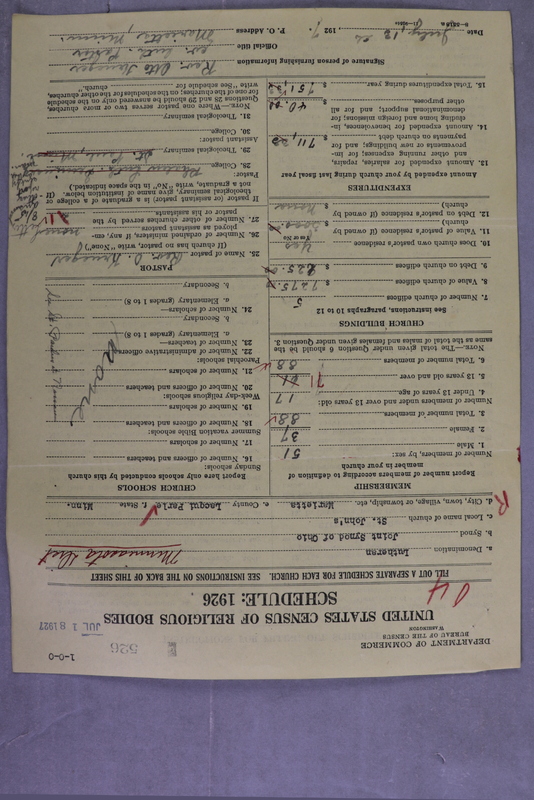 1-0-0
DEPARTMENT OF COMMERCE
BUREAU OF THE CENSUS
WASHINGTON
526
JUL 18 1927
UNITED STATES CENSUS OF RELIGIOUS BODIES
SCHEDULE: 1926
FILL OUT A SEPARATE SCHEDULE FOR EACH CHURCH. SEE INSTRUCTIONS ON THE BACK OF THIS SHEET
a. Denomination Lutheran Minnesota Dist
b. Synod Joint Synod of Ohio
c. Local name of church St. John's
d. City, town, village, or township, etc. Marietta e. County Lacqui Parle f. State Minn.
MEMBERSHIP
Report number of members according to definition of member in your church
Number of members, by sex:
1. Male 51
2. Female 37
3. Total number of members 88
Number of members under and over 13 years old:
4. Under 13 years of age 17
5. 13 years old and over 71
6. Total number of members 88
NOTE.—The total given under Question 6 should be the same as the total of males and females given under Question 3.
CHURCH BUILDINGS
See instructions, paragraphs 10 to 12
7. Number of church edifices 5
8. Value of church edifices $ 7275.00
9. Debt on church edifices $ 225.00
10. Does church own pastor's residence Yes
(Yes or No)
11. Value of pastor's residence (if owned by church) $
12. Debt on pastor's residence (if owned by church) $ none
EXPENDITURES
Amount expended by your church during last fiscal year
13. Amount expended for salaries, repairs, and other running expenses; for improvements or new buildings; and for payments on church debt $ 711.23
14. Amount expended for benevolences, including home and foreign missions; for denominational support; and for all other purposes $ 40.00
15. Total expenditures during year $ 751.23
CHURCH SCHOOLS
Report here only schools conducted by this church
Sunday schools:
16. Number of officers and teachers
17. Number of scholars
Summer vacation Bible schools:
18. Number of officers and teachers
19. Number of scholars
Week-day religious schools:
20. Number of officers and teachers
21. Number of scholars
Parochial schools:
22. Number of administrative officers
23. Number of teachers—
a. Elementary (grades 1 to 8)
b. Secondary
24. Number of scholars—
a. Elementary (grades 1 to 8)
b. Secondary
None
PASTOR
25. Name of pastor Rev. O. Krueger
(If church has no pastor, write "None")
26. Number of ordained ministers, if any, employed as assistants to pastor none
27. Number of other churches served by the pastor or his assistants
If pastor (or assistant pastor) is a graduate of a college or theological seminary, give name of institution below. (If not a graduate, write "No" in the space indicated.)
Pastor:
28. College
29. Theological seminary St. Paul, Minn.
Assistant pastor:
30. College
31. Theological seminary
NOTE.—Where one pastor serves two or more churches, Questions 28 and 29 should be answered only on the schedule for one of the churches; on the schedules for the other churches, write "See schedule for church."
Signature of person furnishing information Rev. Otto Krueger
Official title
Date July 13, 1927 P. O. Address Marietta, Minn.
8-5518a